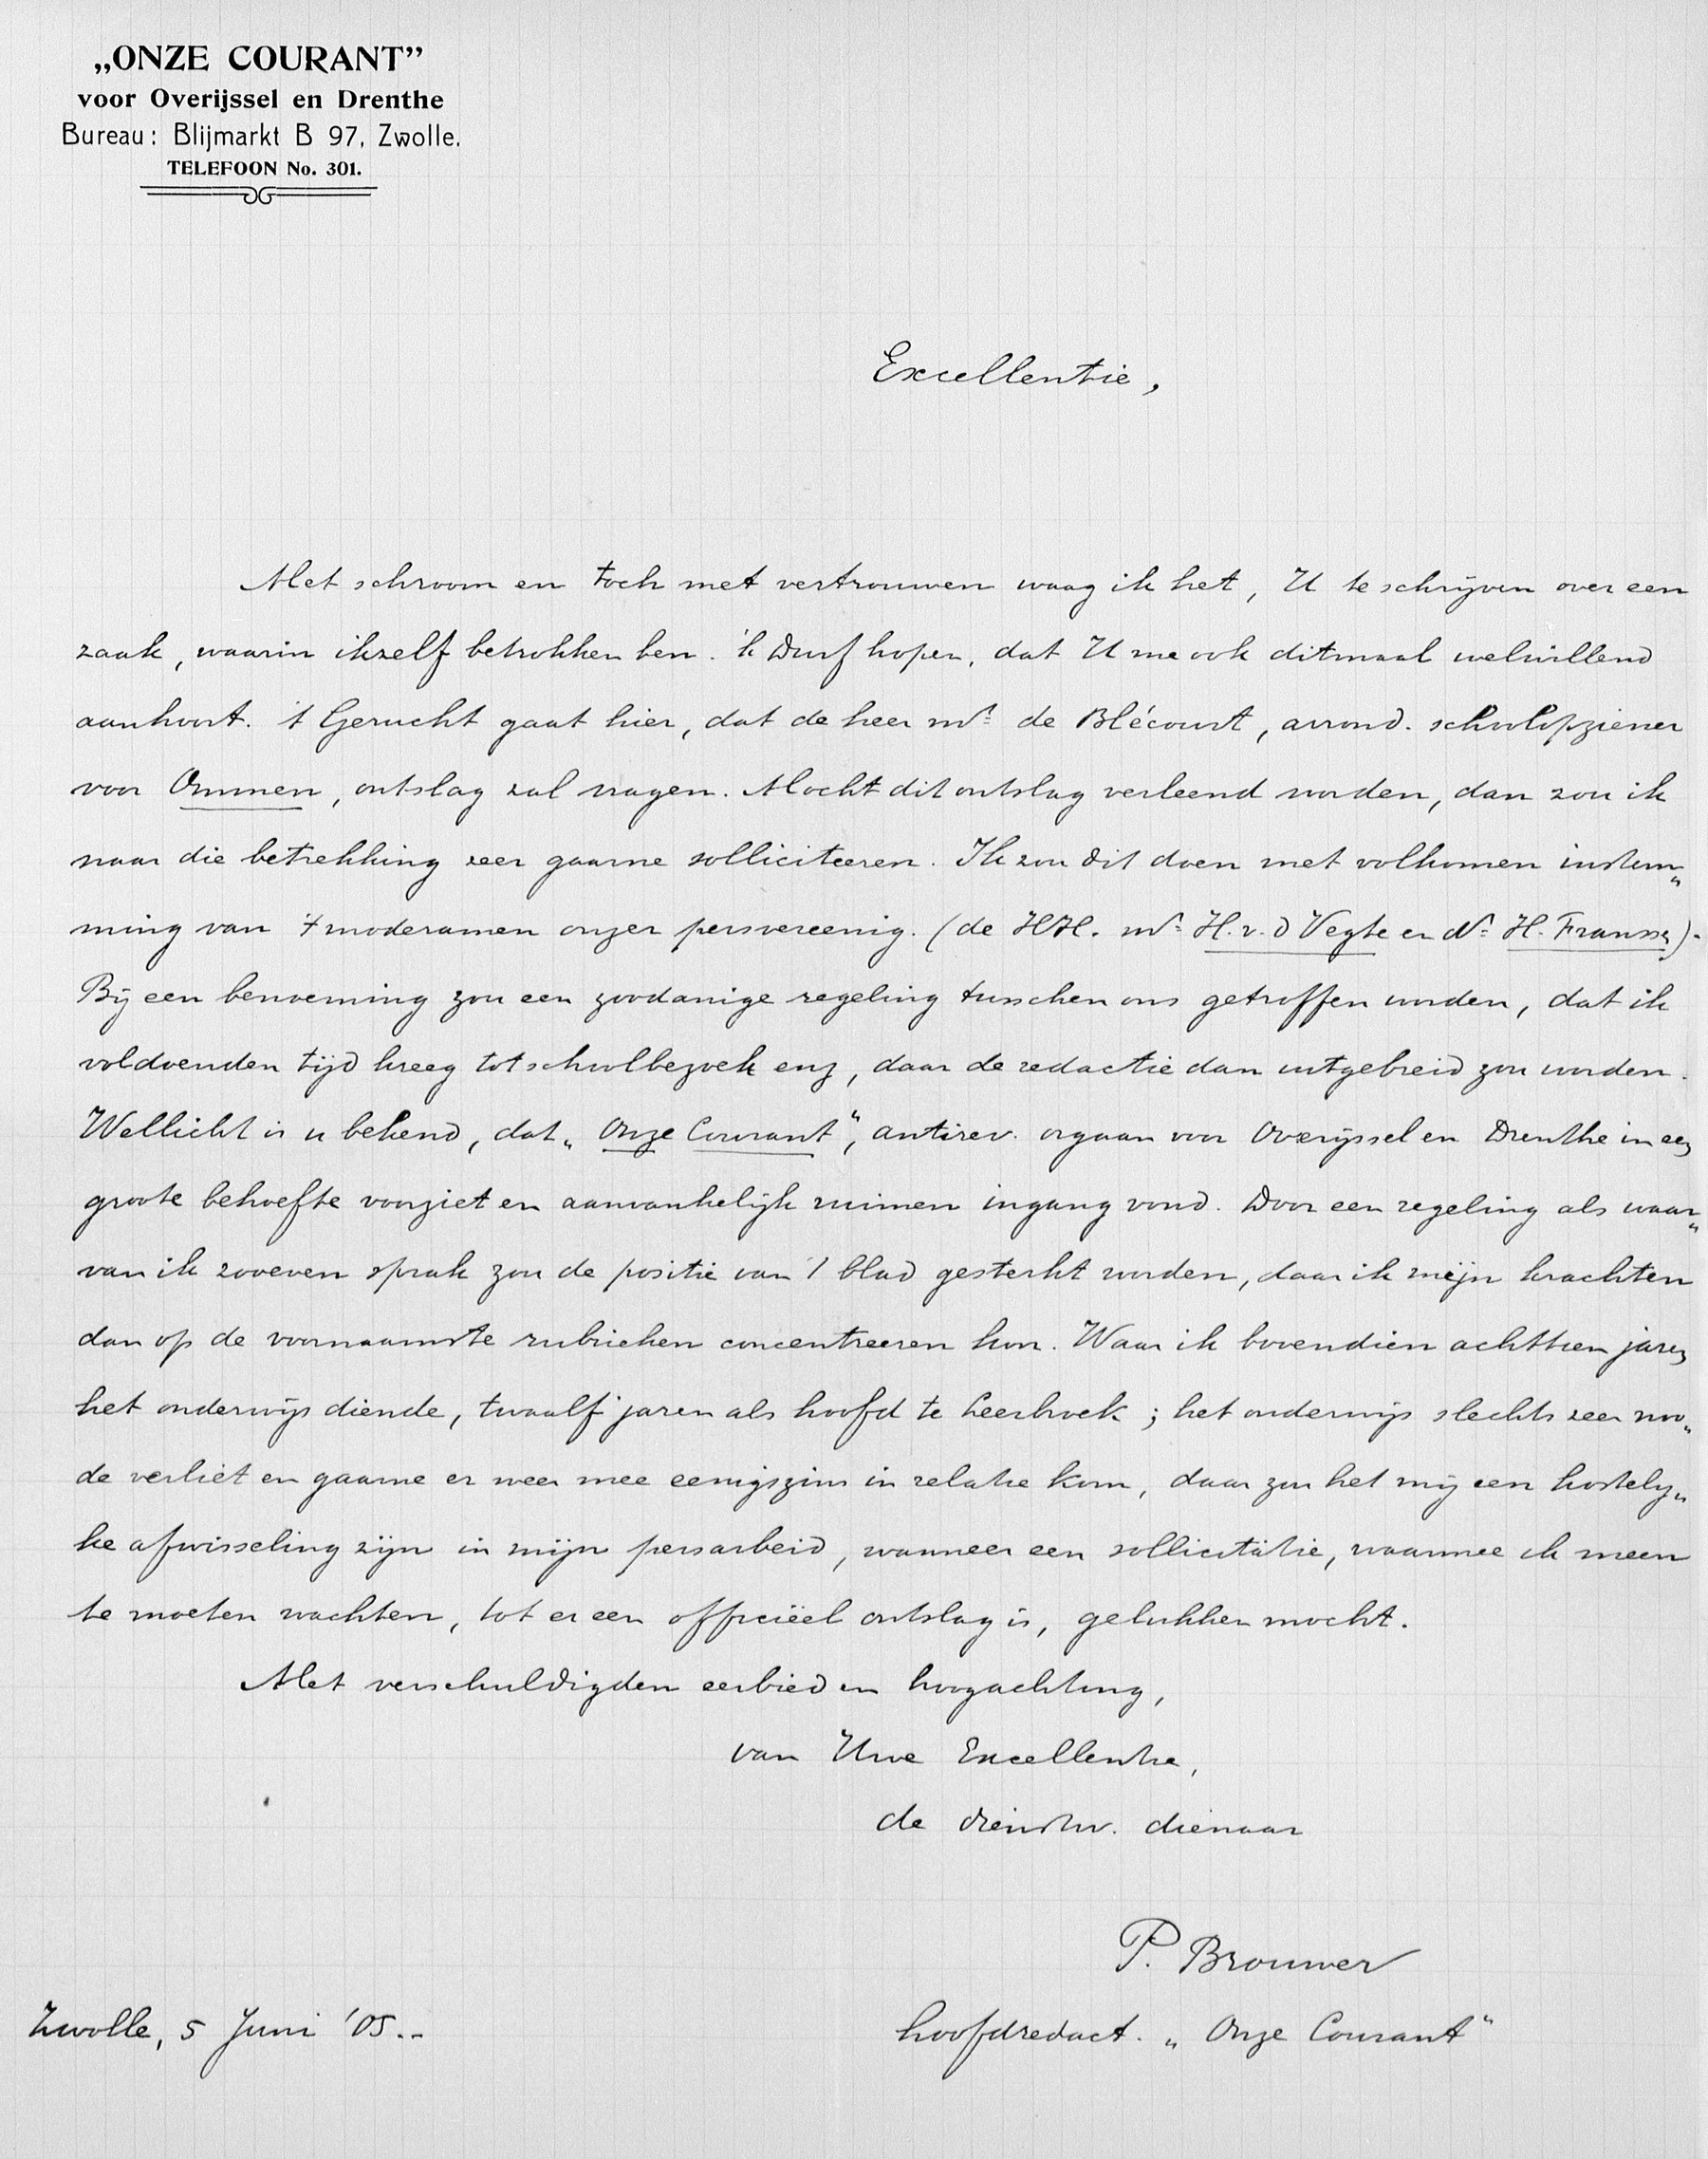 „ONZE COURANT”
voor Overijssel en Drenthe
Bureau: Blijmarkt B 97, Zwolle.
TELEFOON No. 301.
Excellentie,
Met schroom en toch met vertrouwen waag ik het, U te schrijven over een
zaak, waarin ikzelf betrokken ben. 'k Durf hopen, dat U me ook ditmaal welwillend
aanhoort. 't Gerucht gaat hier, dat de heer mr. de Blécourt, arrond. schoolopziener
voor Ommen, ontslag zal vragen. Mocht dit ontslag verleend worden, dan zou ik
naar die betrekking zeer gaarne solliciteeren. Ik zou dit doen met volkomen instem„
ming van 't moderamen onzer persvereenig. (de HH. mr. H. v. d Vegte en Dr. H. Franssen).
Bij een benoeming zou een zoodanige regeling tusschen ons getroffen worden, dat ik
voldoenden tijd kreeg tot schoolbezoek enz, daar de redactie dan uitgebreid zou worden.
Wellicht is u bekend, dat „Onze Courant”, antirev. orgaan voor Overijssel en Drenthe in een
groote behoefte voorziet en aanvankelijk ruimen ingang vond. Door een regeling als waar„
van ik zooeven sprak zou de positie van 't blad gesterkt worden, daar ik mijn krachten
dan op de voornaamste rubrieken concentreeren kon. Waar ik bovendien achttien jaren
het onderwijs diende, twaalf jaren als hoofd te Leerhoek; het onderwijs slechts zeer noo„
de verliet en gaarne er weer mee eenigszins in relatie kom, daar zou het mij een kostelij„
ke afwisseling zijn in mijn persarbeid, wanneer een sollicitatie, waarmee ik meen
te moeten wachten, tot er een officiëel ontslag is, gelukken mocht.
Met verschuldigden eerbied en hoogachting,
van Uwe Excellentie,
de dienstw. dienaar
P. Brouwer
Zwolle, 5 Juni '05.-
hoofdredact. „Onze Courant”